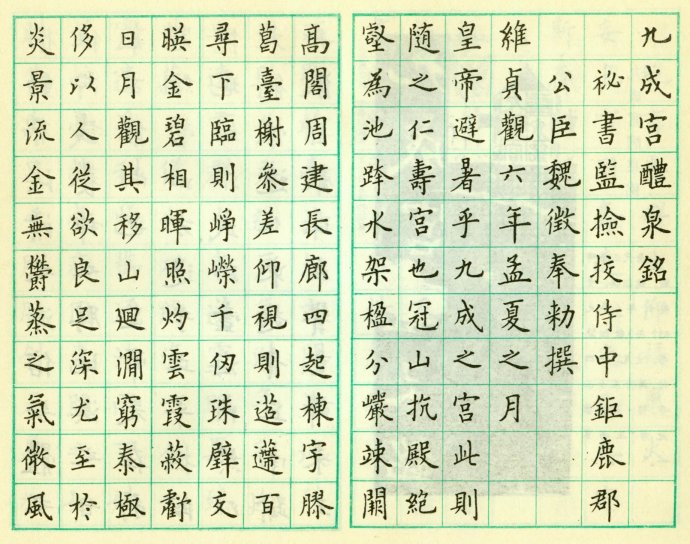 九成宮醴泉銘
秘書監撿挍侍中鉅鹿郡
公臣魏徵奉勑撰
維貞觀六年孟夏之月
皇帝避暑乎九成之宮此則
随之仁壽宮也冠山抗殿絶
壑為池跨水架楹分巖竦闕
髙閣周建長廊四起棟宇膠
葛臺榭叅差仰視則迢遰百
尋下臨則崢嶸千仞珠璧交
暎金碧相暉照灼雲霞蔽虧
日月觀其移山迴澗窮泰極
侈以人從欲良足深尤至扵
炎景流金無欝蒸之氣微風